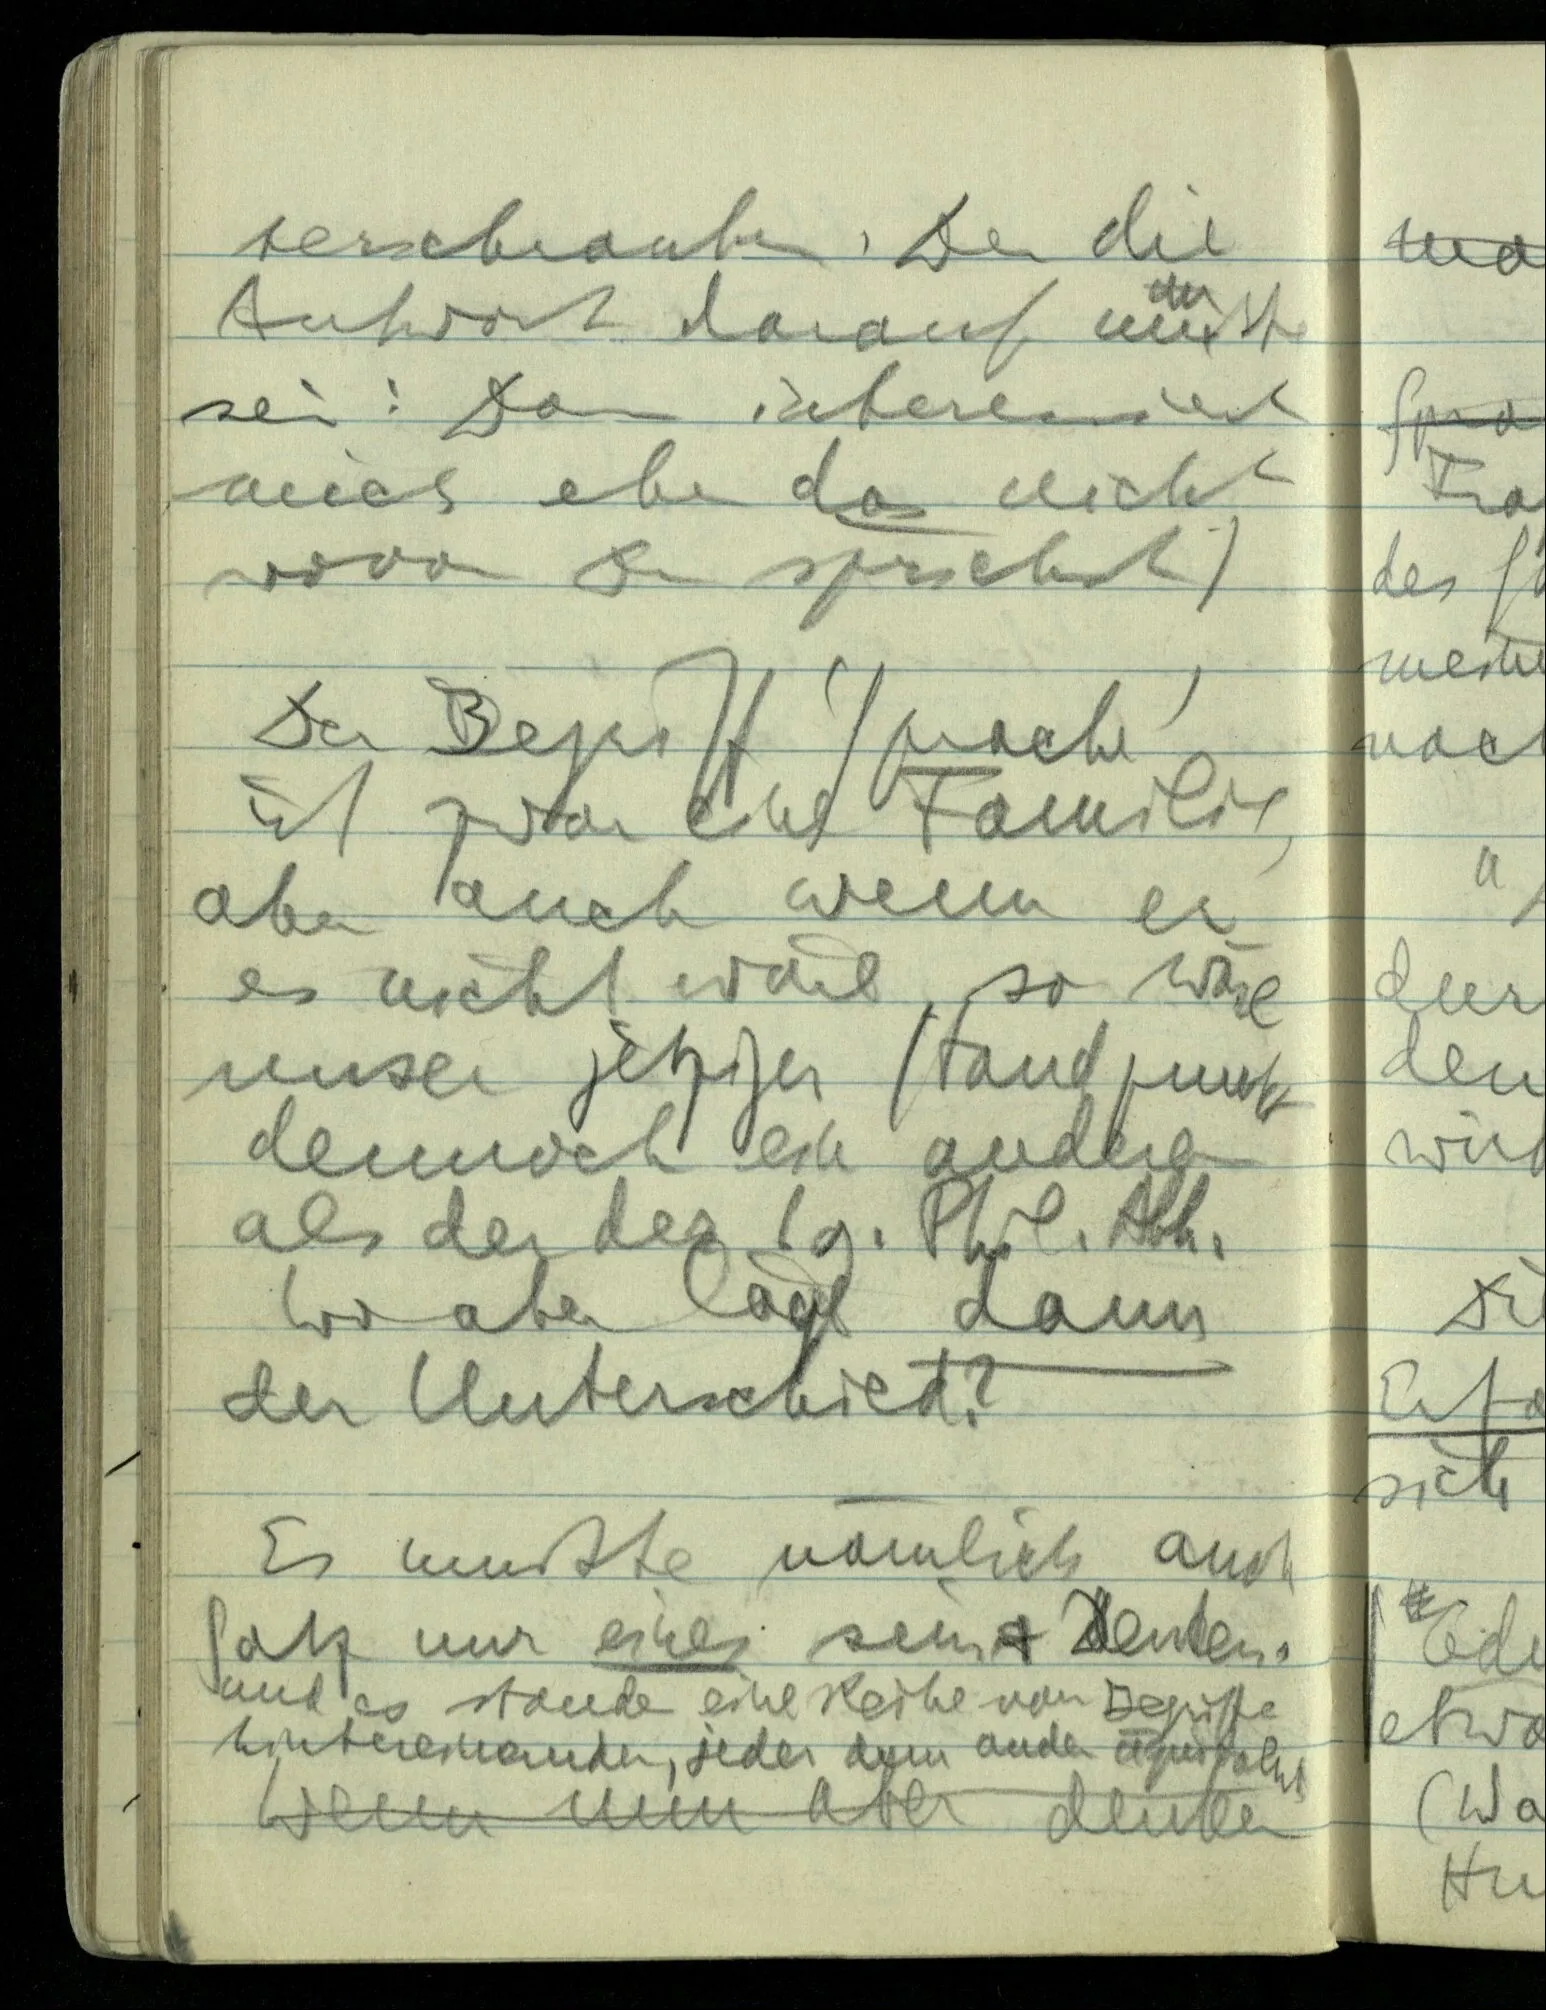 verschrauben. Den die
Antwort darauf müßte
der
sein: Dann interessiert
mich eben das nicht
wovon Du sprichst)
Der Begriff ‚Sprache'
ist zwar eine Familie,
aber auch wenn er
es nicht wäre, so wäre
unser jetziger Standpunkt
dennoch ein anderer
als der der Log. Phil. Abh.
Wo aber läge dann
der Unterschied?
Es müßte nämlich auch
Satz nur eines sein & Denken.
und es stünde eine Reihe von Begriffen
hintereinander, jeder dem andern äquivalent
Wenn nun aber denken
ma
Spra
Fra
des
meine
nach
"
dur
den
wird
Erfa
sich
etwa
(Wa
Hu